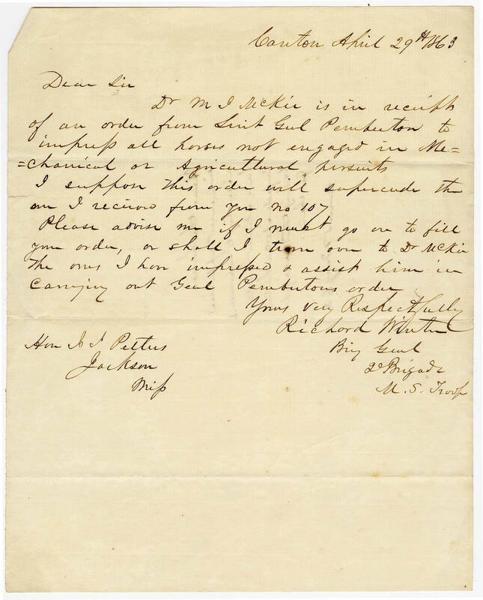 Canton April 29th 1863
Dear Sir
Dr M J McKie is in receipt
of an order from Liut Genl Pemberton to
impress all horses not engaged in Me-
=chanical or Agricultural persuits
I suppose this order will supercede the
one I recieved from you no 107
Please advise me if I must go on to fill
your order, or shall I turn over to Dr McKie
the ones I have impressed & assist him in
carrying out Genl Pembertons order
Yours very Respectfully
Richard Winter
Brig Genl
2d Brigade
M. S. Troops
Hon J J Pettus
Jackson
Miss